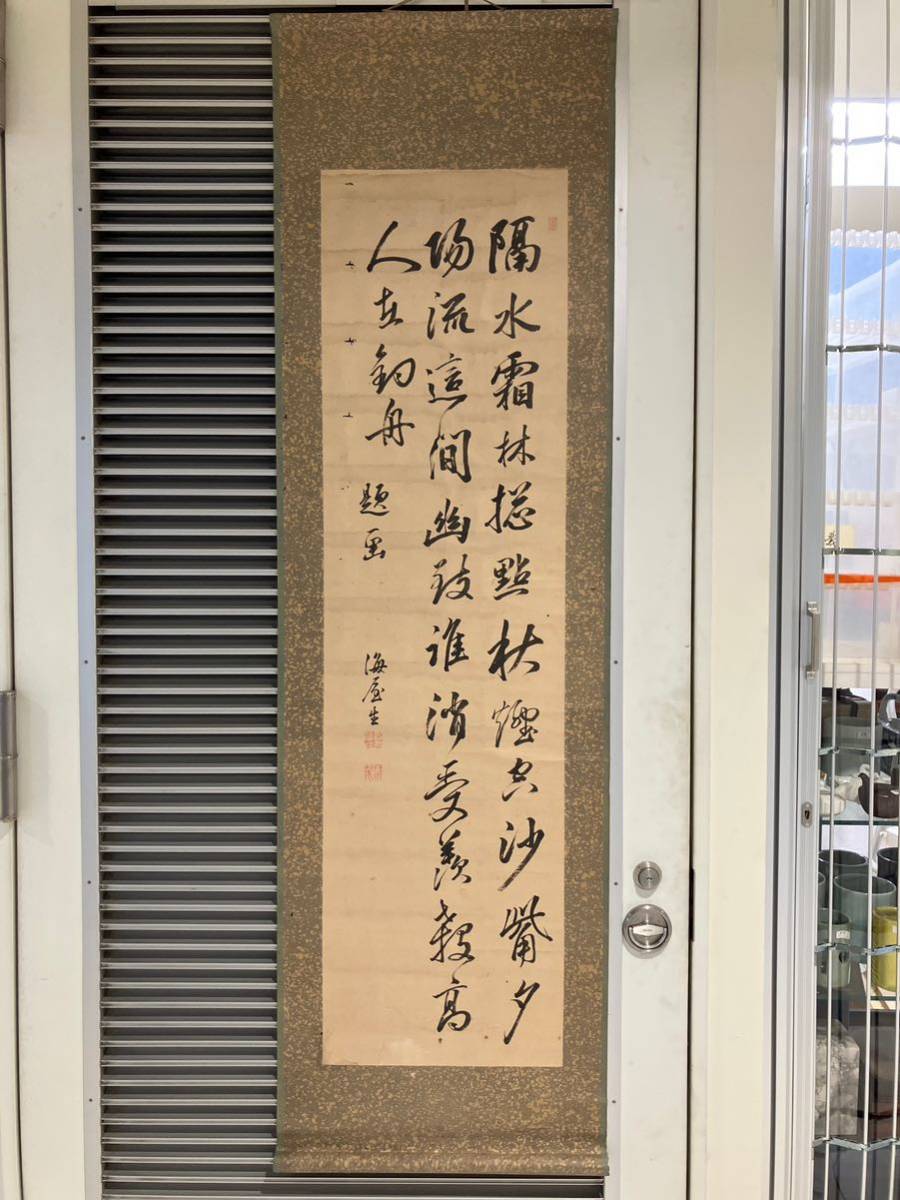 隔水霜林揔點秋煙空沙觜夕
陽流這間幽致誰消受羨殺高
人在釣舟 題画
海屋生